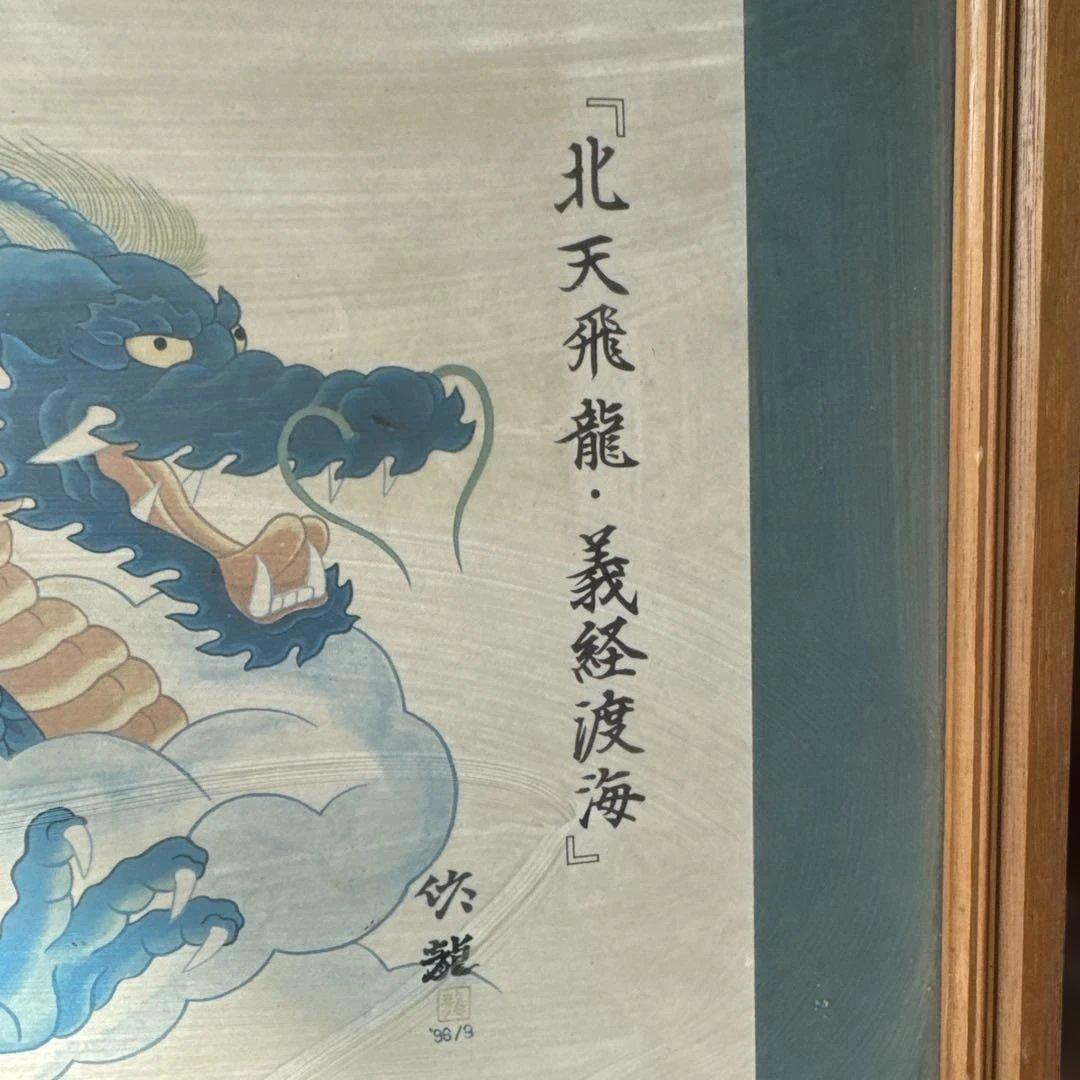 『北天飛龍・義経渡海』
龍
'96/9